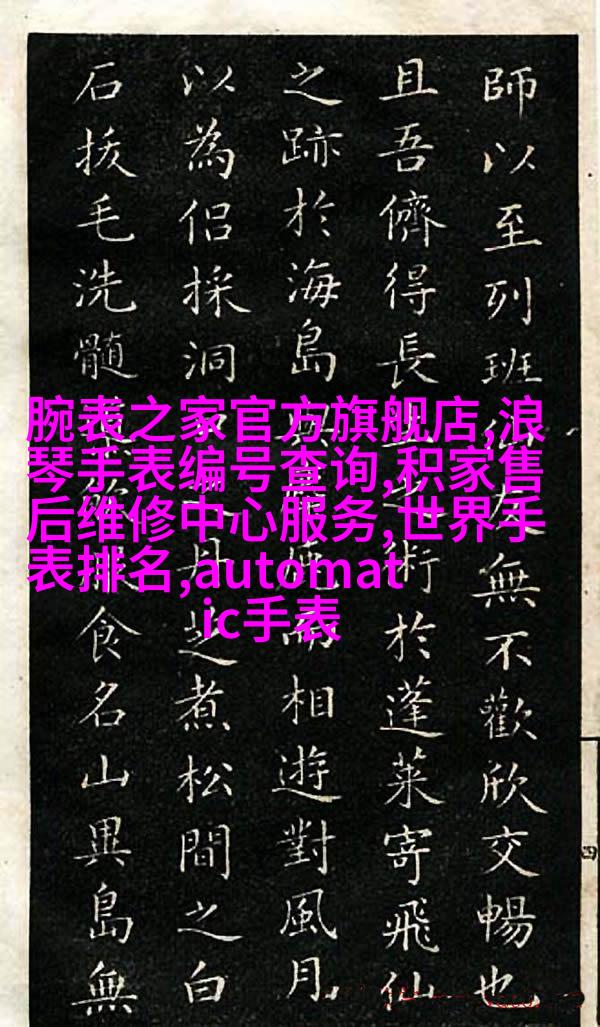 師以至列班仙友無不歡欣交暢也
且吾儕得長之術於蓬萊寄飛仙
之跡於海島與而相遊對風月
以為侶採洞之丹芝煮松間之白
石拔毛洗髓食名山異島無
腕表之家官方旗舰店,浪
琴手表编号查询,积家售
后维修中心服务,世界手
表排名,automat
ic手表
四